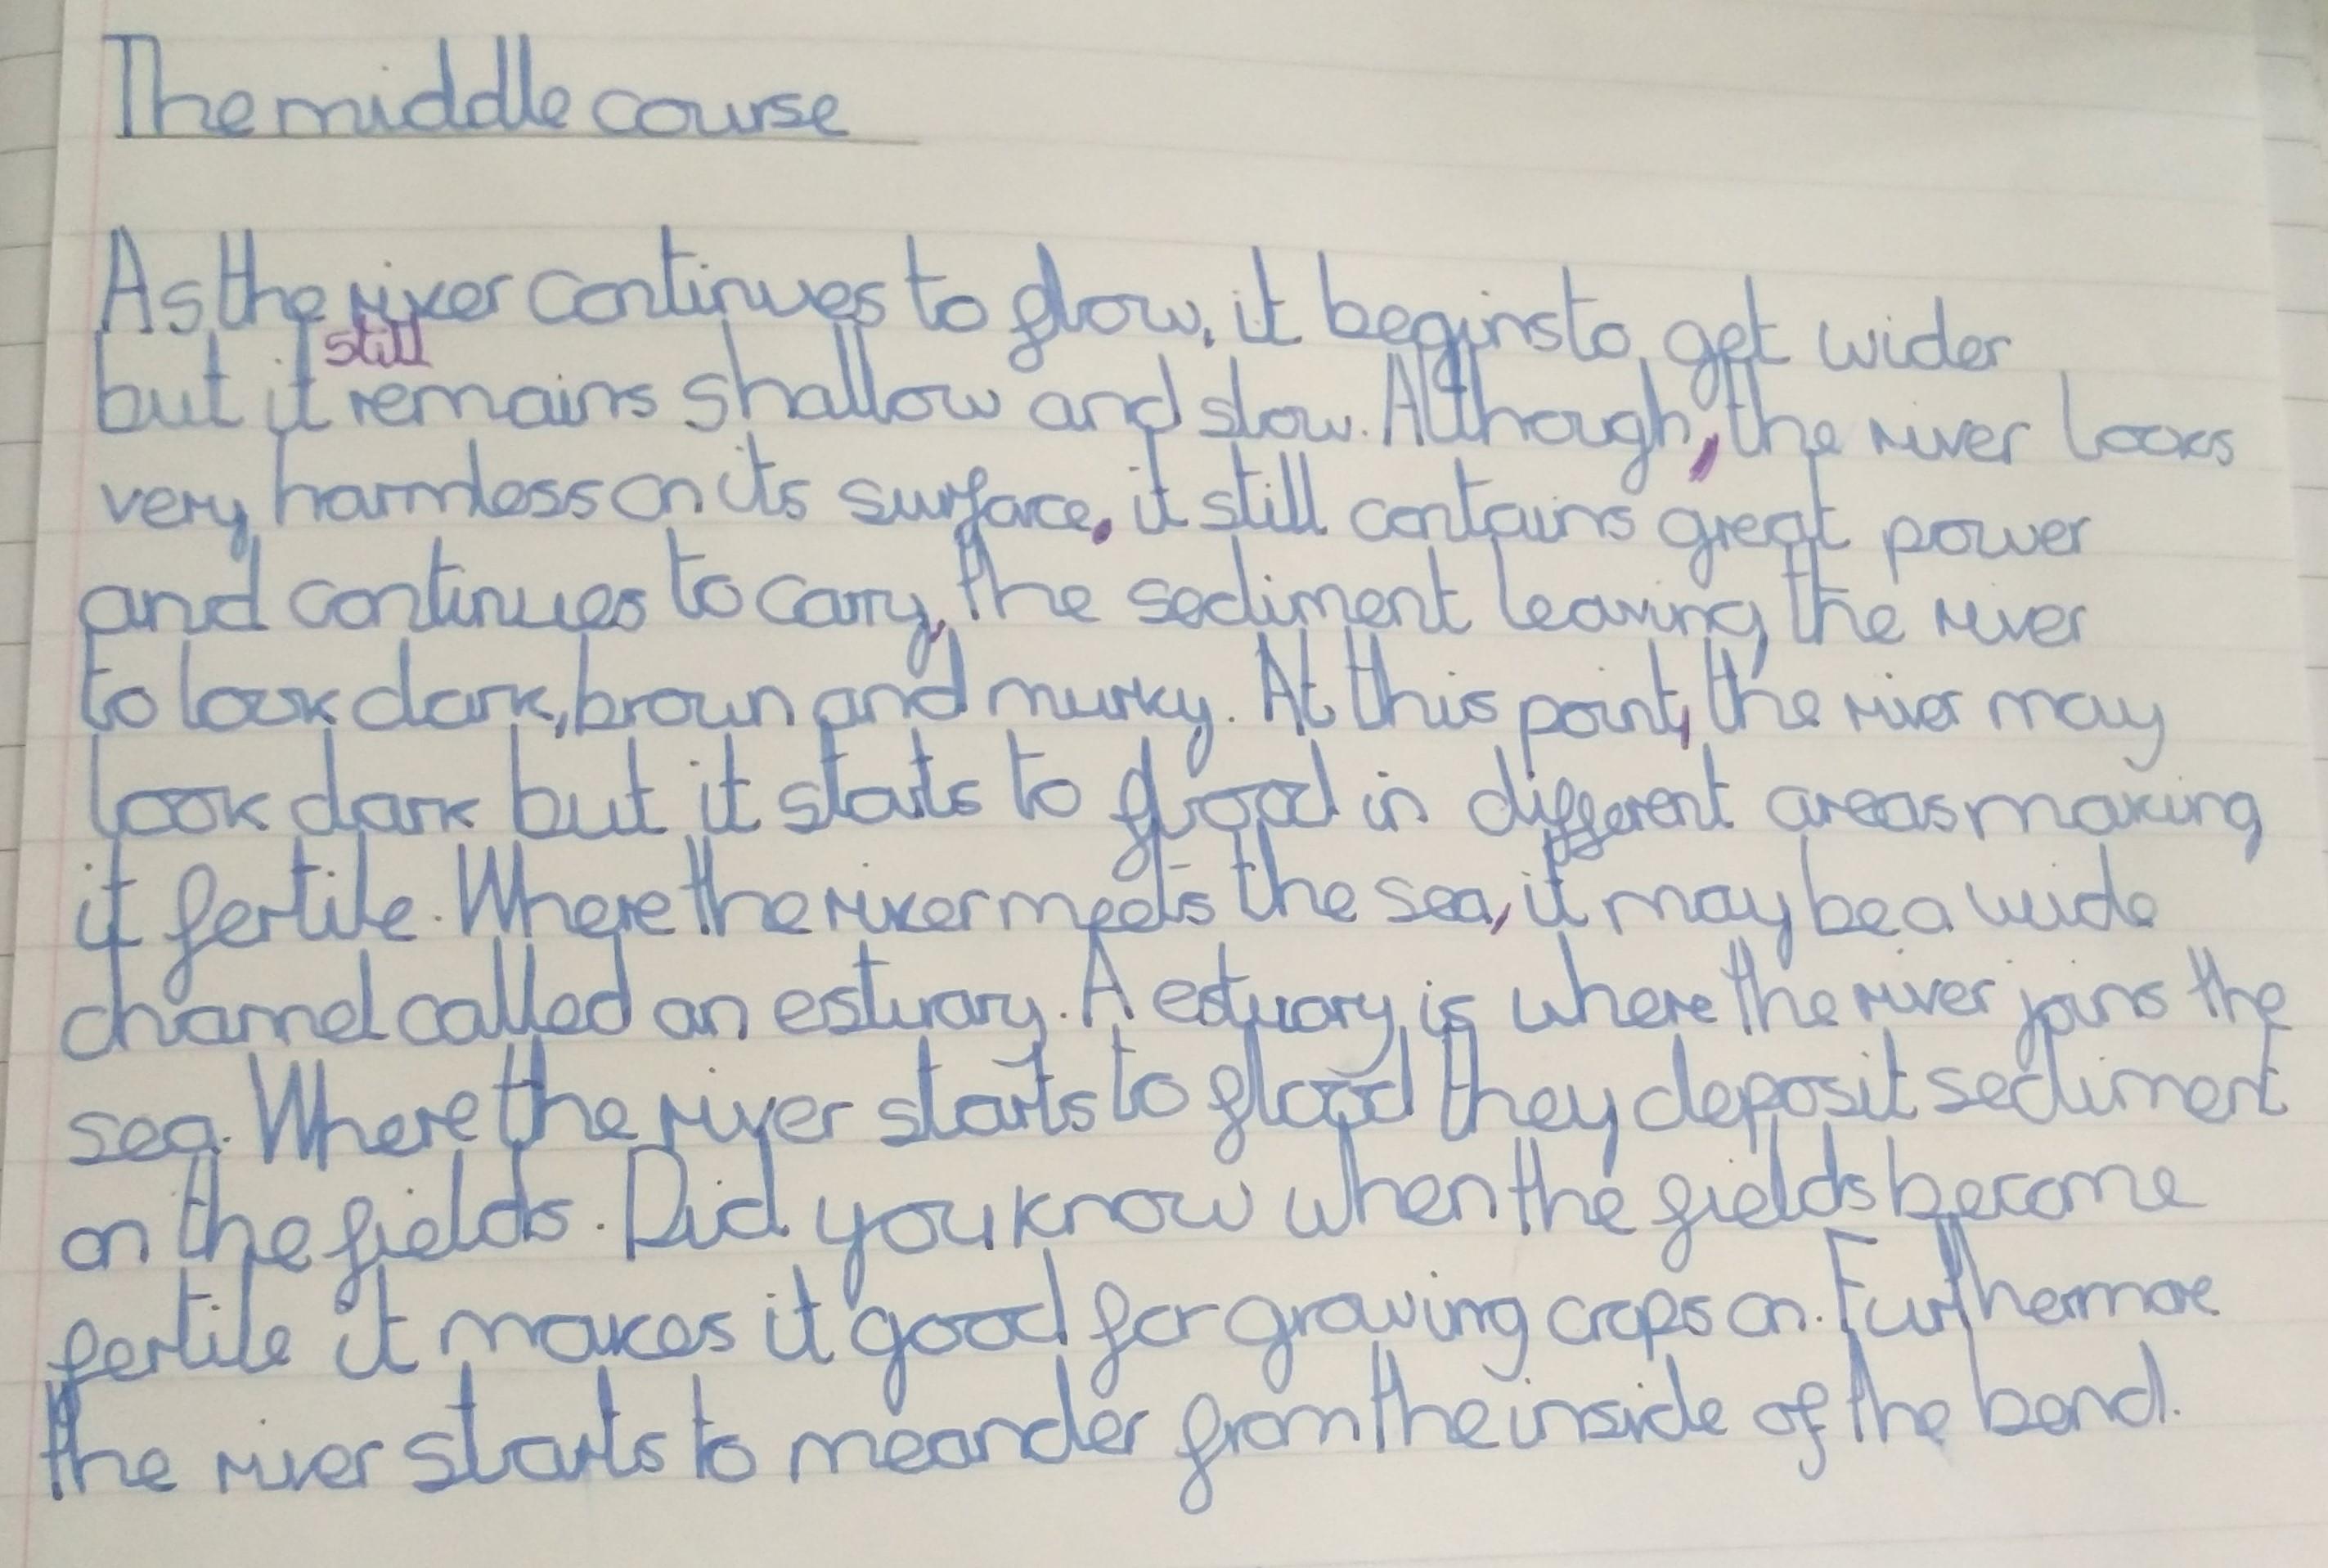 The middle course
As the river continues to flow, it begins to get wider
still
but it remains shallow and slow. Although, the river looks
very harmless on its surface, it still contains great power
and continues to carry, the sediment leaving the river
to look dark, brown and murky. At this point, the river may
look dark but it starts to flood in different areas making
it fertile. Where the river meets the sea, it may be a wide
channel called an estuary. A estuary is where the river joins the
sea. Where the river starts to flood they deposit sediment
on the fields. Did you know when the fields become
fertile it makes it good for growing crops on. Furthermore
the river starts to meander from the inside of the bend.